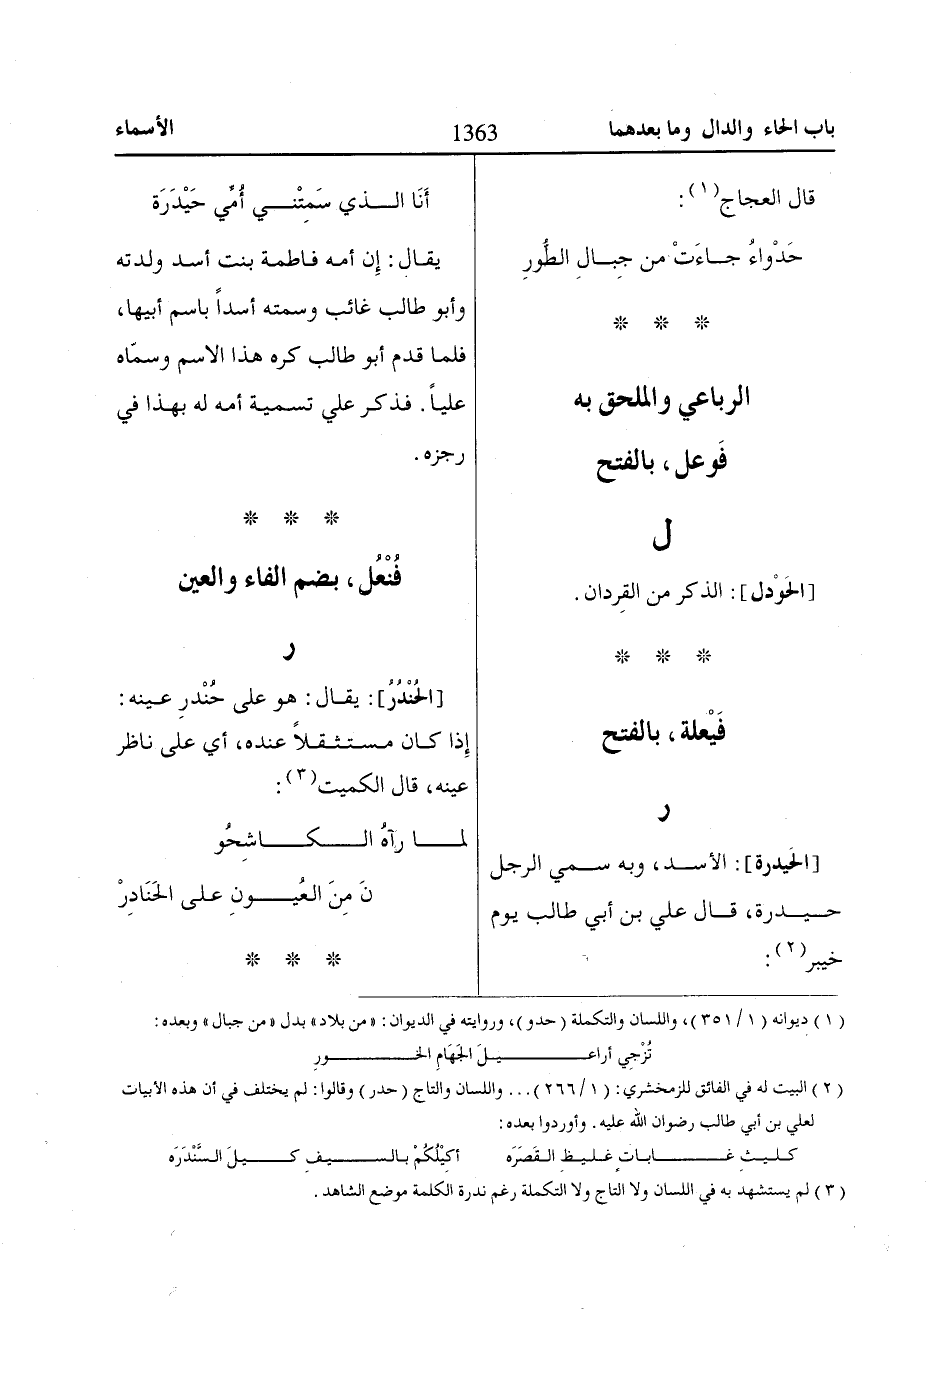 باب الحاء والدال وما بعدهما
1363
الأسماء
قال العجاج(١):
حَدْواءُ جاءَتْ من جبالِ الطُّورِ
* * *
الرباعي والملحق به
فَوعل، بالفتح
ل
[الحَوْدل]: الذكر من القردان.
* * *
فَيْعلة، بالفتح
ر
[الحَيدرة]: الأسد، وبه سمي الرجل
حيدرة، قال علي بن أبي طالب يوم
خيبر(٢):
أَنَا الذي سَمتْني أُمِّي حَيْدَرَة
يقال: إن أمه فاطمة بنت أسد ولدته
وأبو طالب غائب وسمته أسداً باسم أبيها،
فلما قدم أبو طالب كره هذا الاسم وسمّاه
علياً. فذكر علي تسمية أمه له بهذا في
رجزه.
* * *
فُنْعُل، بضم الفاء والعين
ر
[الحُنْدُرُ]: يقال: هو على حُنْدرِ عينه:
إذا كان مستثقلاً عنده، أي على ناظر
عينه، قال الكميت(٣):
لما رآهُ الكاشِحُو
نَ مِنَ العُيونِ على الحَنَادِرْ
* * *
(١) ديوانه (١/ ٣٥١)، واللسان والتكملة (حدو)، وروايته في الديوان: «من بلاد» بدل «من جبال» وبعده:
تُزْجي أراعيلَ الجَهَامِ الخورِ
(٢) البيت له في الفائق للزمخشري: (١/ ٢٦٦)... واللسان والتاج (حدر) وقالوا: لم يختلف في أن هذه الأبيات
لعلي بن أبي طالب رضوان الله عليه. وأوردوا بعده:
كليثِ غاباتٍ غليظِ القَصَرَه أكيْلُكُمْ بالسيفِ كيلَ السَّنْدَرَه
(٣) لم يستشهد به في اللسان ولا التاج ولا التكملة رغم ندرة الكلمة موضع الشاهد.